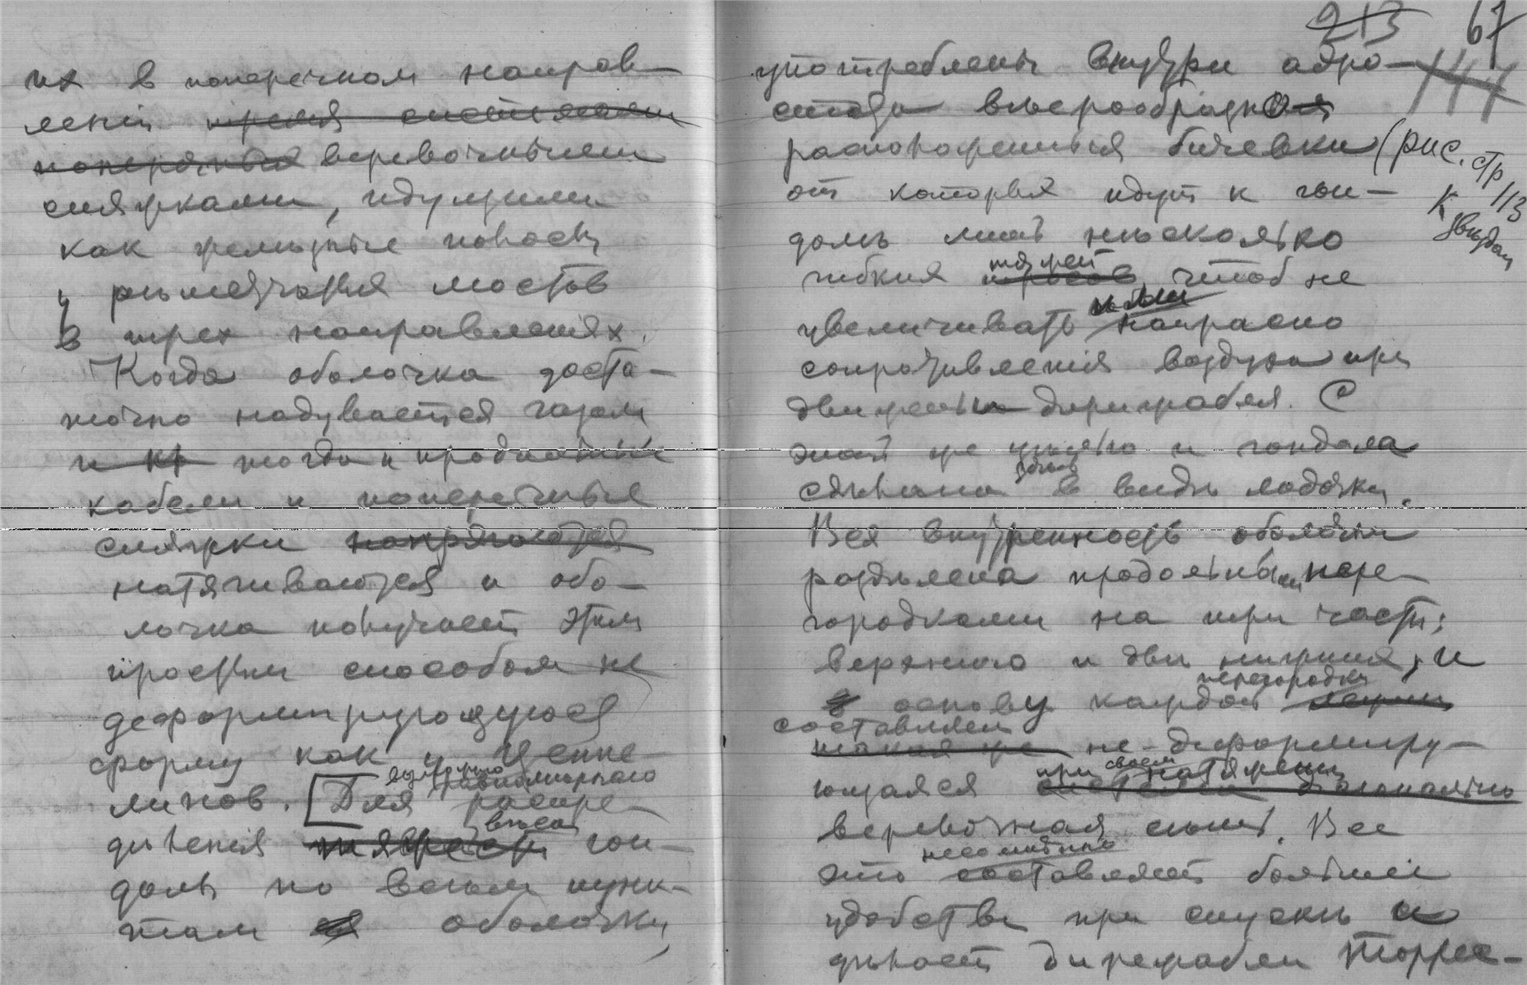 их в поперечном направ-
лении время системам
поперечныя веревочными
стяжками, идущими
как железные полосы
у решетчатыя мостов
в трех направлениях.
Когда оболочка доста-
точно надувается газом
и тогда и продольные
кабели и поперечныя
стяжки напрягаются
натягиваются и обо-
лочка получает этим
простым способом не
деформирующуюся
форму как у Цеппе-
линов. [Для равномернаго распре-
дѣления тяжести вѣса гон-
долы по всѣм пунк-
там оболочки,
213 67
употреблены внутри аэро-
стата вѣерообразныя
расположенныя бичевки (рис. стр 113
от которыя идут к гон-
долѣ лишь нѣсколько
гибких тяжей чтоб не
увеличивать напрасно
сопротивления воздуха при
движении дирижабля. С
этой же цѣлью и гондола
сдѣлана в видѣ лодочки.
Вся внутренность оболочки
раздѣлена продольными пере-
городками на три части:
верхнюю и двѣ нижния, и
в основу каждой перегородки
составляет
такая же не деформиру-
ющаяся при своем натяжении диагонально
веревочная сѣть. Все
это несомнѣнно составляет большия
удобства при спускѣ и
дѣлает дирижабли Торрес-